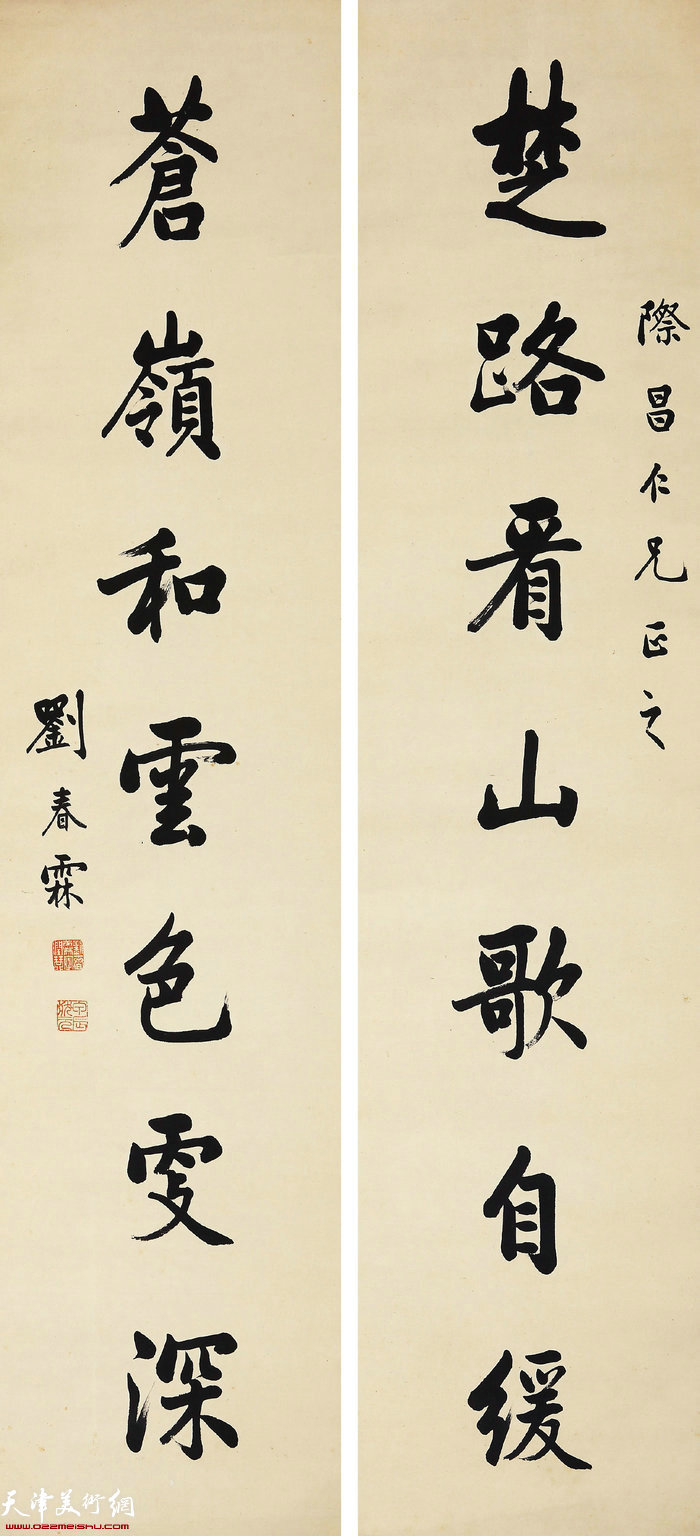 際昌仁兄正之
楚路看山歌自緩
蒼嶺和雲色雯深
劉春霖
天津美術網
www.022meishu.com